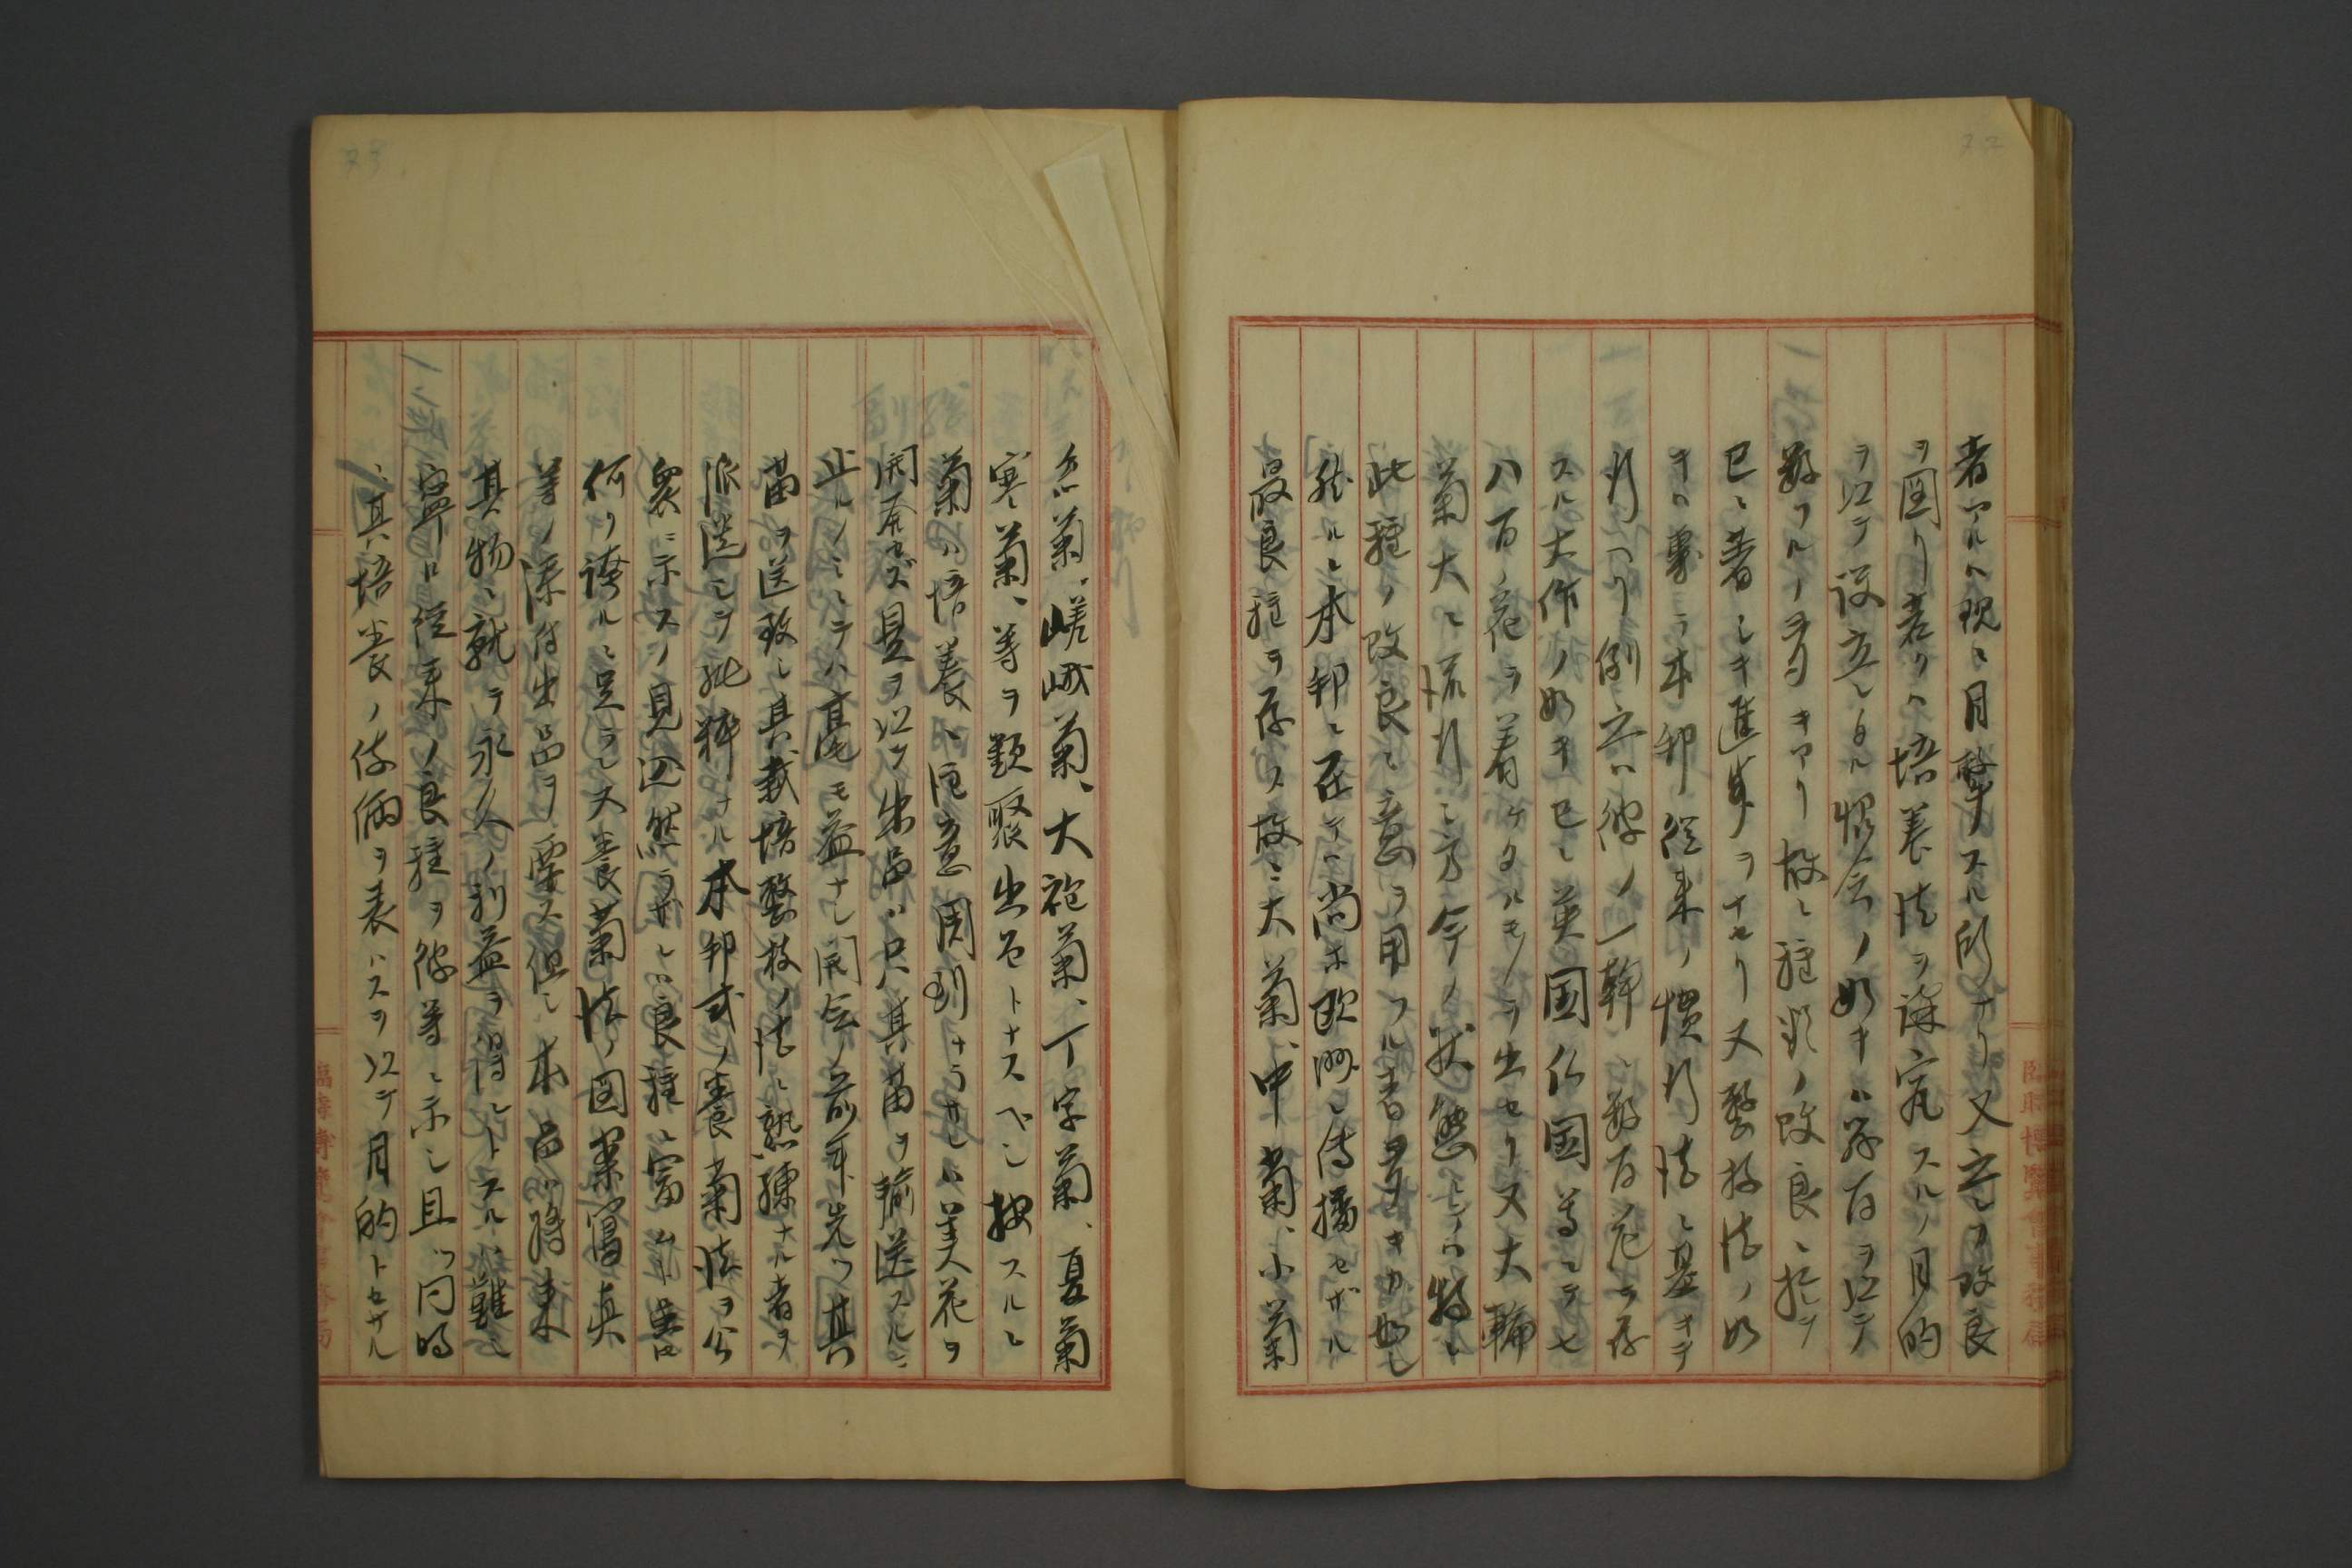 者アルハ現ニ目撃スル所ナリ又之レヲ改良
ヲ図リ若クハ培養法ヲ講究スルノ目的
ヲ以テ設立シタル協会ノ如キハ数百ヲ以テ
数フルノ多キアリ故ニ種類ノ改良ニ於テ
已ニ著シキ進歩ヲナセリ又整枝法ノ如
キハ専ラ本邦従来ノ慣行法ニ基キテ
行ヘリ例之ハ彼ノ一幹ニ数百花ヲ存
スル大作ノ如キ已ニ英国仏国等ニテ七
八百ノ花ヲ着ケタルモノヲ出セリ又大輪
菊大ニ流行シ方今ノ状態ニテハ特ニ
此種ノ改良ニ意ヲ用フル者多キカ如シ
然ルニ本邦ニ在テハ尚ホ欧洲ニ伝播セザル
最良種ヲ存ス故ニ大菊、中菊、小菊
菊、嵯峨菊、大袍菊、丁字菊、夏菊
寒菊、等ヲ類聚出品トナスベシ按スルニ
菊ハ培養ニ注意周到ナラサレハ美花ヲ
開春セズ是ヲ以テ出品ハ只其苗ヲ輸送スルニ
止ルノミニテハ毫モ益ナシ開会ノ前年先ツ其
苗ヲ送致シ其栽培整枝ノ法ニ熟練ナル者ヲ
派遣シテ純粋ナル本邦式ノ養菊法ヲ公
衆ニ示スノ見込然ラザレハ良種ニ富ムト雖
何ソ誇ルニ足ラン又養菊法ノ図案写真
等ノ添付出品ヲ要ス但シ本品ハ将来
其物ニ就テ永久ノ利益ヲ得ントスルハ難シ
寧ロ従来ノ良種ヲ彼等ニ示シ且ツ同時
ニ其培養ノ伎倆ヲ表ハスヲ以テ目的トセサル
臨時博覧会事務局